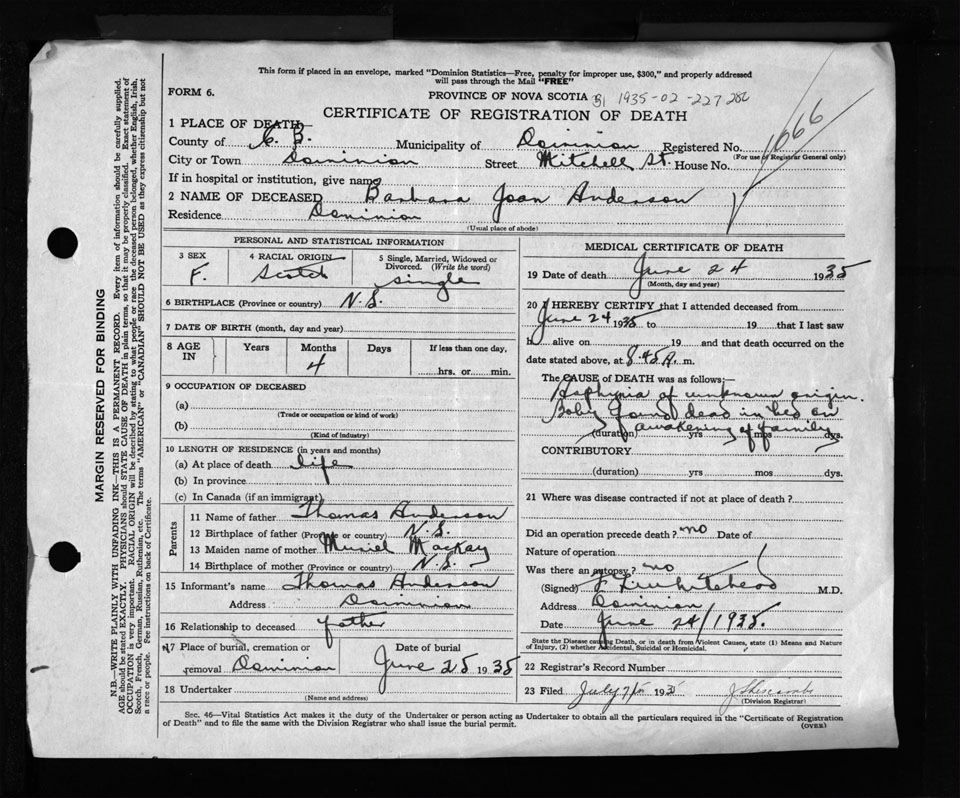 This form if placed in an envelope, marked "Dominion Statistics—Free, penalty for improper use, $300," and properly addressed
will pass through the Mail "FREE"
FORM 6.
PROVINCE OF NOVA SCOTIA 1935-02-227286
CERTIFICATE OF REGISTRATION OF DEATH
1666
1 PLACE OF DEATH
County of C. B. Municipality of Dominion Registered No.
(For use of Registrar General only)
City or Town Dominion Street Mitchell St. House No.
If in hospital or institution, give name
2 NAME OF DECEASED Barbara Joan Anderson
Residence Dominion
(Usual place of abode)
PERSONAL AND STATISTICAL INFORMATION
3 SEX 4 RACIAL ORIGIN 5 Single, Married, Widowed or
Divorced. (Write the word)
F. Scotch single
6 BIRTHPLACE (Province or country) N.S.
7 DATE OF BIRTH (month, day and year)
8 AGE IN Years Months Days If less than one day,
4 hrs. or min.
9 OCCUPATION OF DECEASED
(a)
(Trade or occupation or kind of work)
(b)
(Kind of industry)
10 LENGTH OF RESIDENCE (in years and months)
(a) At place of death life
(b) In province
(c) In Canada (if an immigrant)
Parents
11 Name of father Thomas Anderson
12 Birthplace of father (Province or country) N.S.
13 Maiden name of mother Muriel Mackay
14 Birthplace of mother (Province or country) N.S.
15 Informant's name Thomas Anderson
Address Dominion
16 Relationship to deceased father
17 Place of burial, cremation or Date of burial
removal Dominion June 25 1935
18 Undertaker
(Name and address)
MEDICAL CERTIFICATE OF DEATH
19 Date of death June 24 1935
(Month, day and year)
20 I HEREBY CERTIFY that I attended deceased from
June 24 1935 to 19 that I last saw
h alive on 19 and that death occurred on the
date stated above, at 8.45 A. m.
The CAUSE of DEATH was as follows:—
Asphyxia of unknown origin.
Baby found dead in bed on
awakening of family
(duration) yrs mos dys.
CONTRIBUTORY
(duration) yrs mos dys.
21 Where was disease contracted if not at place of death?
Did an operation precede death? no Date of
Nature of operation
Was there an autopsy? no
(Signed) M.D.
Address Dominion
Date June 24/1935.
State the Disease causing Death, or in death from Violent Causes, state (1) Means and Nature
of Injury, (2) whether Accidental, Suicidal or Homicidal.
22 Registrar's Record Number
23 Filed July 1935
(Division Registrar)
Sec. 46—Vital Statistics Act makes it the duty of the Undertaker or person acting as Undertaker to obtain all the particulars required in the "Certificate of Registration
of Death" and to file the same with the Division Registrar who shall issue the burial permit.
(OVER)
MARGIN RESERVED FOR BINDING
N.B.—WRITE PLAINLY WITH UNFADING INK—THIS IS A PERMANENT RECORD. Every item of information should be carefully supplied.
AGE should be stated EXACTLY. PHYSICIANS should STATE CAUSE OF DEATH in plain terms, so that it may be properly classified. Exact statement of
OCCUPATION is very important. RACIAL ORIGIN will be described by stating to what people or race the deceased person belonged, whether English, Irish,
Scotch, French, German, Russian, Ruthenian, etc. The terms "AMERICAN" or "CANADIAN" SHOULD NOT BE USED as they express citizenship but not
a race or people. See instructions on back of Certificate.